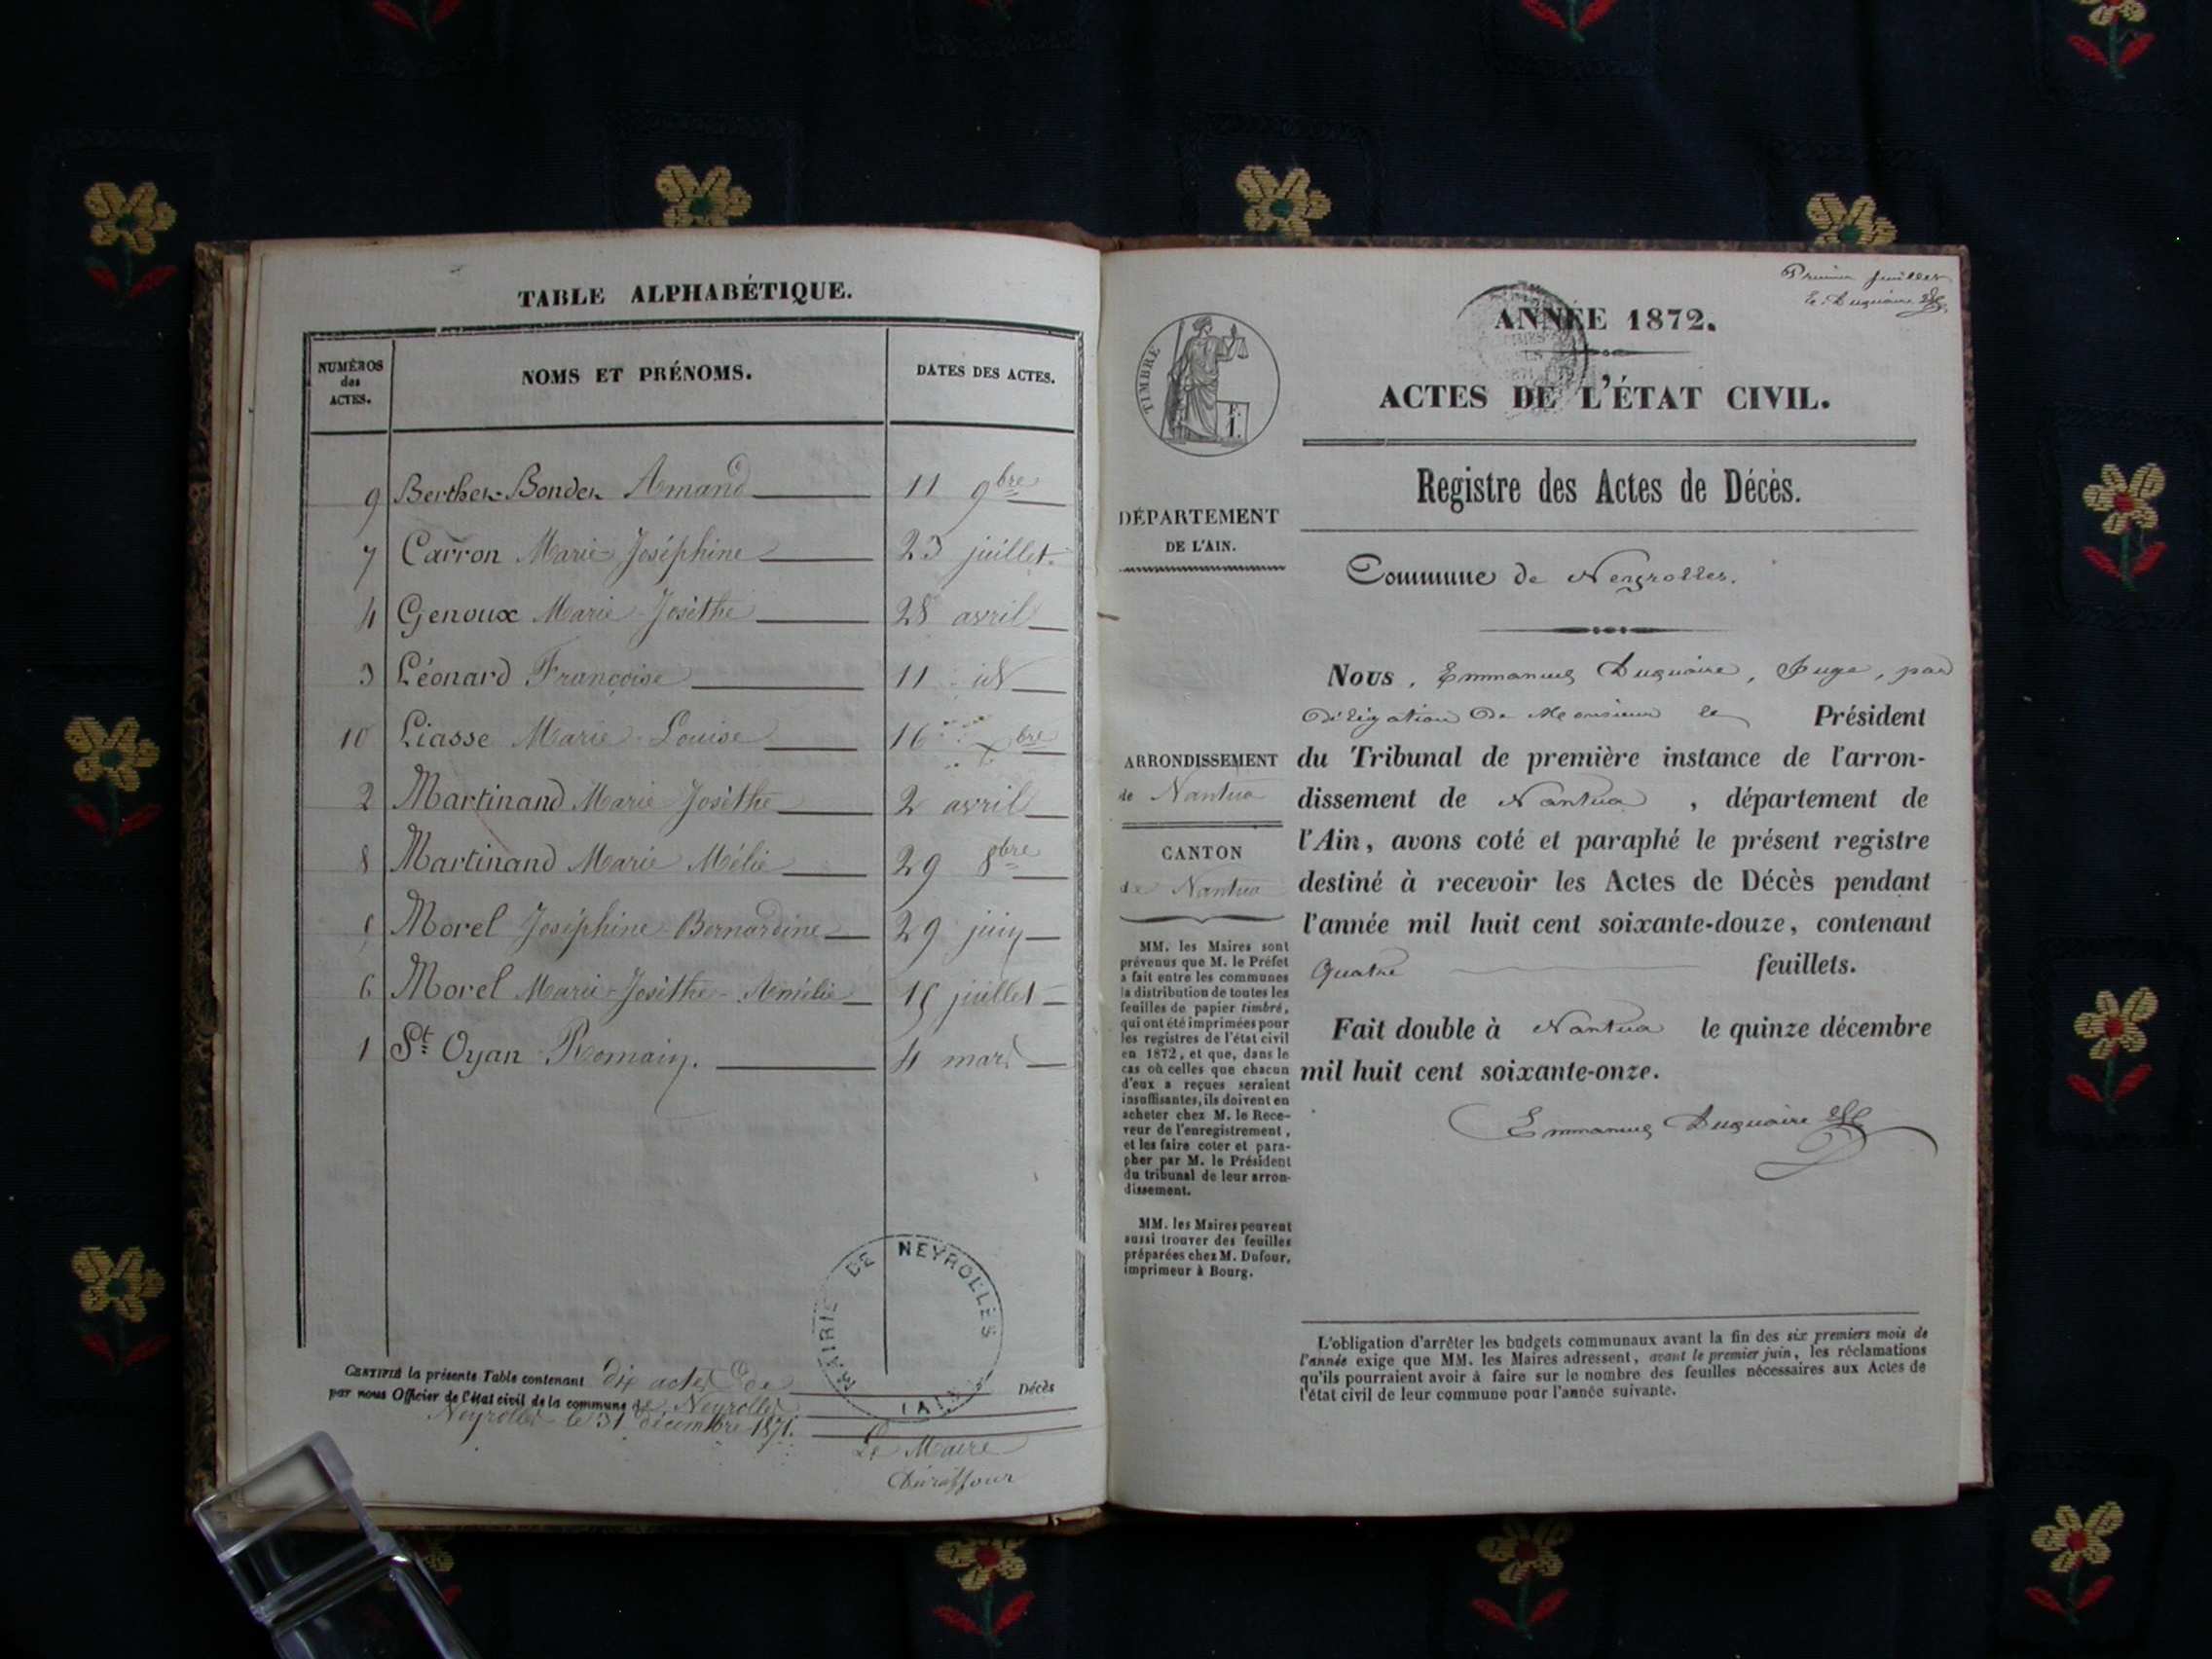 TABLE ALPHABÉTIQUE.
NUMÉROS
des
ACTES.
NOMS ET PRÉNOMS.
DATES DES ACTES.
9 Berthet-Bondet Amand 11 9bre
7 Carron Marie-Joséphine 23 juillet
4 Genoux Marie-Josèthe 28 avril
3 Léonard Françoise 11 id
10 Liasse Marie-Louise 16 Xbre
2 Martinand Marie Josèthe 2 avril
8 Martinand Marie Mélie 29 8bre
Morel Joséphine-Bernardine 29 juin
6 Morel Marie-Josèthe-Amélie 15 juillet
1 St Oyan Romain. 4 mars
CERTIFIÉ la présente Table contenant dix actes de Décès
par nous Officier de l'état civil de la commune de Neyrolles
Neyrolles le 31 décembre 1871.
Le Maire
MAIRIE DE NEYROLLES
(AIN)
Premier feuillet
E. Duquaire
ANNÉE 1872.
ACTES DE L'ÉTAT CIVIL.
Registre des Actes de Décès.
TIMBRE
F.
1.
DÉPARTEMENT
DE L'AIN.
Commune de Neyrolles.
ARRONDISSEMENT
de Nantua
CANTON
de Nantua
MM. les Maires sont
prévenus que M. le Préfet
a fait entre les communes
la distribution de toutes les
feuilles de papier timbré,
qui ont été imprimées pour
les registres de l'état civil
en 1872, et que, dans le
cas où celles que chacun
d'eux a reçues seraient
insuffisantes, ils doivent en
acheter chez M. le Rece-
veur de l'enregistrement,
et les faire coter et para-
pher par M. le Président
du tribunal de leur arron-
dissement.
MM. les Maires peuvent
aussi trouver des feuilles
préparées chez M. Dufour,
imprimeur à Bourg.
Nous, Emmanuel Duquaire, Juge, par
délégation de Monsieur le Président
du Tribunal de première instance de l'arron-
dissement de Nantua, département de
l'Ain, avons coté et paraphé le présent registre
destiné à recevoir les Actes de Décès pendant
l'année mil huit cent soixante-douze, contenant
quatre feuillets.
Fait double à Nantua le quinze décembre
mil huit cent soixante-onze.
Emmanuel Duquaire
L'obligation d'arrêter les budgets communaux avant la fin des six premiers mois de
l'année exige que MM. les Maires adressent, avant le premier juin, les réclamations
qu'ils pourraient avoir à faire sur le nombre des feuilles nécessaires aux Actes de
l'état civil de leur commune pour l'année suivante.